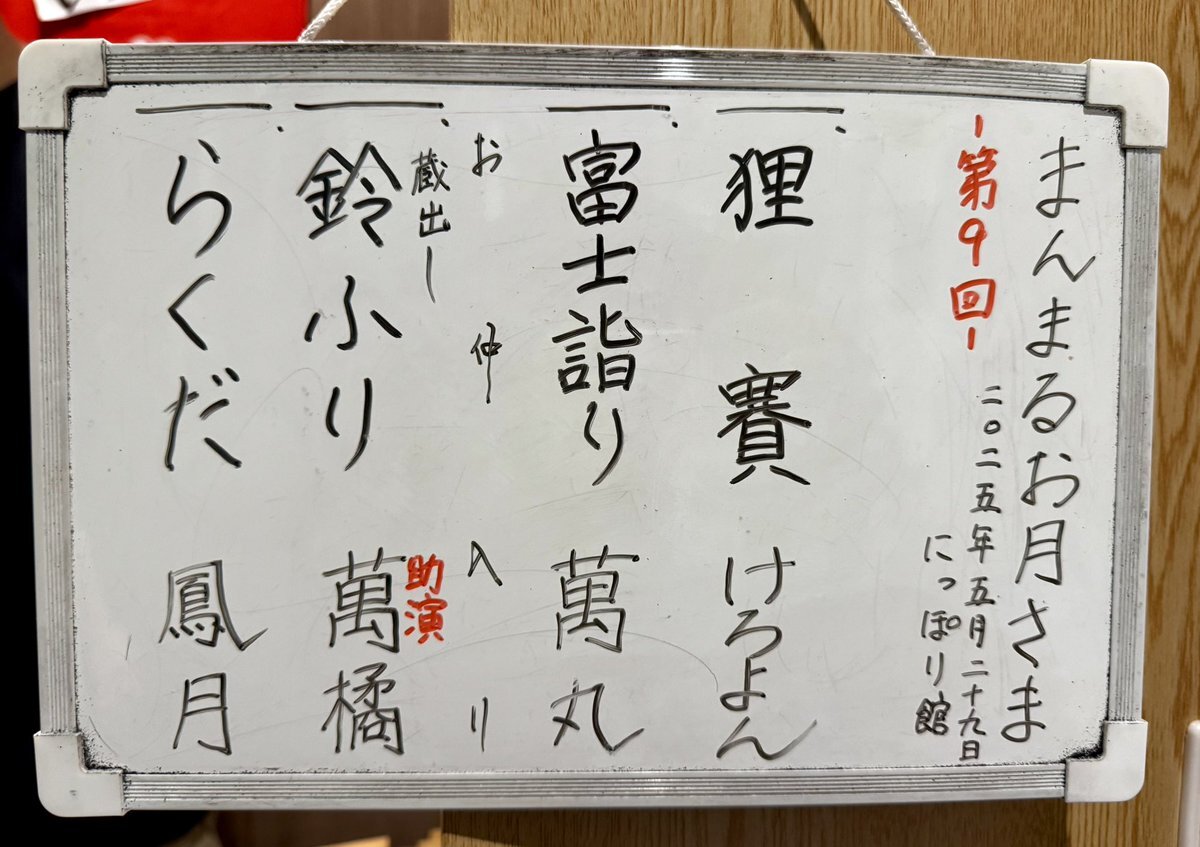 まんまるお月さま
-第9回-
二〇二五年五月二十九日
にっぽり館
一、狸賽 けろよん
一、富士詣り 萬丸
お仲入り
蔵出し
助演
一、鈴ふり 萬橘
一、らくだ 鳳月